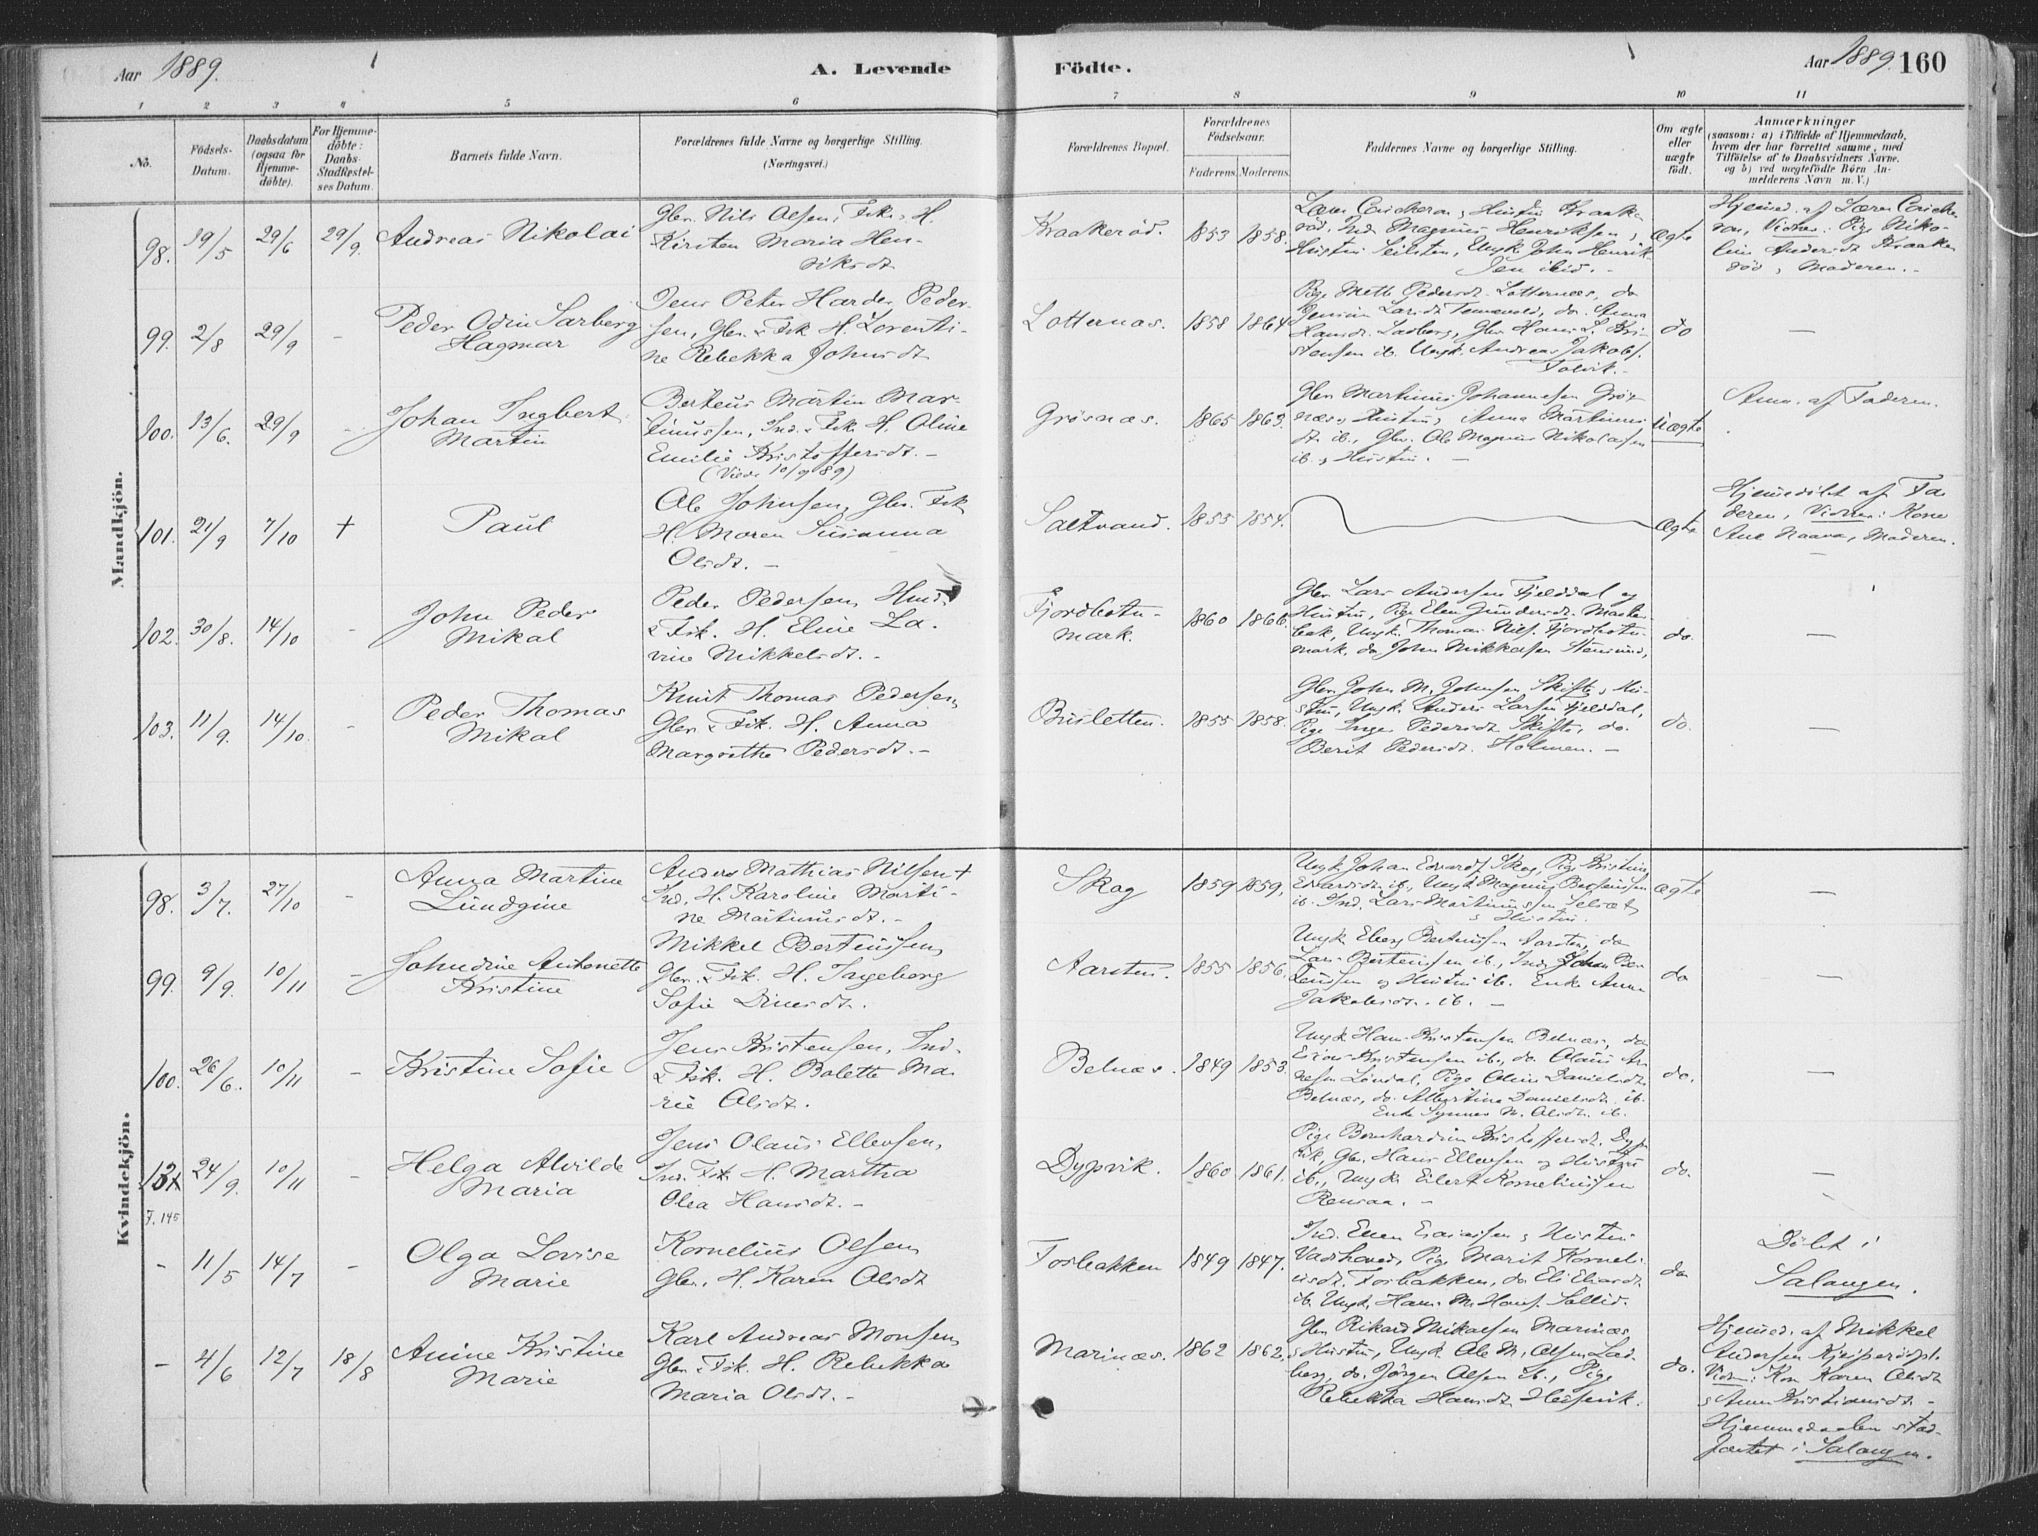 Aar 1889.
A. Levende
Födte.
Aar 1889. 160
1 2 3 4 5 6 7 8 9 10 11
No.
Födsels-
Datum.
Daabsdatum
(ogsaa for
Hjemme-
döbte).
For Hjemme-
döbte:
Daabs-
Stadfæstel-
ses Datum.
Barnets fulde Navn.
Forældrenes fulde Navne og borgerlige Stilling.
(Næringsvei.)
Forældrenes Bopæl.
Forældrenes
Födselsaar.
Faderens. Moderens.
Faddernes Navne og borgerlige Stilling.
Om ægte
eller
uægte
födt.
Anmærkninger
(saasom: a) i Tilfælde af Hjemmedaab,
hvem der har forrettet samme, med
Tilföielse af to Daabsvidners Navne,
og b) ved uægtefödte Börn An-
melderens Navn m. V.)
Mandkjön.
98. 19/5 29/6 29/9. Andreas Nikolai
Gbr. Nils Olsen, Fsk. H.
Kirsten Maria Hen-
riksdt.
Kraakeröd. 1853 1858.
Magnus Henriksen
Hustru Seilsten, Ungk. John Henrik-
sen ibid. -
Ægte
Hjemmed. af
Vidner: Pige Niko-
Kraake
röd, Moderen. -
99. 2/8 29/9 -
Peder Odin Sarberg
Hagmar
Jens Peter Harder Peder-
sen, Gbr. & Fsk. H. Lorenti-
ne Rebekka Johnsdt.
Lotternæs. 1858 1864
Pige Mette Pedersdt. Lotternæs, do
Larsdt. do. Anna
Hansdt. Gbr. Hans L. Kri-
stensen ib. Ungk. Andreas Jakobs.
do
-
100. 13/6. 29/9 -
Johan Ingbert
Martin
Berteus Martin Mar-
tinussen, Ind. & Fsk. H. Oline
Emilie Kristoffersdt. -
(Viede 10/9 89)
Grösnæs. 1865 1863.
Gbr. Martinus Johannesen Grös-
næs & Hustru, Anna Martinus-
dt. ib., Gbr. Ole Magnus Nikolaisen
ib. & Hustru. -
Uægte
Anm. af Faderen.
101. 21/9 7/10 + Paul
Ole Johnsen, Gbr. Fsk.
H. Maren Susanna
Olsdt. -
Saltvand. 1855 1854.
Ægte
Hjemmedöbt af Fa-
deren, Vidner: Kone
Ane Naava, Moderen.
-
102. 30/8. 14/10 -
John Peder
Mikal
Peder Pedersen, Husm.
& Fsk. H. Eline La-
vine Mikkelsdt. -
Fjordbotn-
mark. 1860 1866.
Gbr. Lars Andersen Fjelddal og
Hustru, Pige Elen Gundersdt.
Ungk. Thomas Nils. Fjordbotn-
mark, do John Mikkelsen
do.
-
103. 11/9. 14/10. -
Peder Thomas
Mikal
Knut Thomas Pedersen,
Gbr. & Fsk. H. Anna
Margrethe Pedersdt. -
Brisletten. 1855 1858.
Gbr. John M. Johnsen, Skifte, & Hu-
stru, Ungk. Anders Larsen Fjelddal,
Pige Inger Pedersdt. Skifte, do.
Berit Pedersdt. Holmen. -
do.
-
Kvindekjön.
98. 3/7. 27/10 -
Anna Martine
Lundgine
Anders Mathias Nilsen +
Ind. H. Karoline Marti-
ne Martinusdt. -
Skog 1859 1859.
Ungk. Johan Edvards. Skog, Pige Kristine
Edvardsdt. ib., Ungk. Magnus Berteussen
ib. Ind. Lars Martinussen
& Hustru.
Ægte
-
99. 9/9. 10/11 -
Johndine Antonette
Kristine
Mikkel Berteussen,
Gbr. & Fsk. H. Ingeborg
Sofie Dinesdt.
Aarsten. 1855 1856.
Ungk. Eberg Berteussen Aarsten, do
Lars Berteussen ib., Ind. Johan Ber-
teussen og Hustru ib. Enke Anna
Jakobsdt. ib. -
do
-
100. 26/6. 10/11 -
Kristine Sofie
Jens Kristensen, Ind.
& Fsk. H. Bolette Ma-
rie Olsdt.
Belnæs. 1849 1853.
Ungk. Hans Kristensen Belnæs, do
Kristensen ib., do. Olaus
Pige Oline Danielsdt.
Belnæs, do. Albertine Danielsdt. ib.
Enke Synnes M. Olsdt. ib.
do.
-
24/9. 10/11 -
F. 145
Helga Alvilde
Maria
Jens Olaus Ellevsen,
Ind. Fsk. H. Martha
Olea Hansdt. -
Dypvik. 1860 1861.
Pige Bernhardine Kristoffersdt. Dyp-
vik, Gbr. Hans Ellevsen og Hustru
ib., Ungk. Eilert Korneliussen
Rensaa. -
do.
-
- 11/5 14/7 -
Olga Lovise
Marie
Kornelius Olsen,
Gbr. H. Karen Olsdt
Fosbakken 1849 1847.
Ind. Enen Esaiassen & Hustru
Vadhoved, Pige Marit Korneli-
usdt. Fosbakken, do Eli Eliasdt.
ib. Ungk. Hans M. Hans.
do
Döbt i
Salangen.
- 4/6 12/7 18/8
Anine Kristine
Marie
Karl Andreas Monsen,
Gbr. & Fsk. H. Rebekka
Maria Olsdt. -
Marinæs. 1862 1862.
Gbr. Rikard Mikalsen Marinæs
& Hustru, Ungk. Ole M. Olsen
do. Jörgen Olsen ib., Pige
Rebekka Hansdt.
do.
Hjemmed. af Mikkel
Andersen
Vidn: Kon. Karen Olsdt.
& Anne Kristiansdt. -
Hjemmedaaben stad-
fæstet i Salangen.